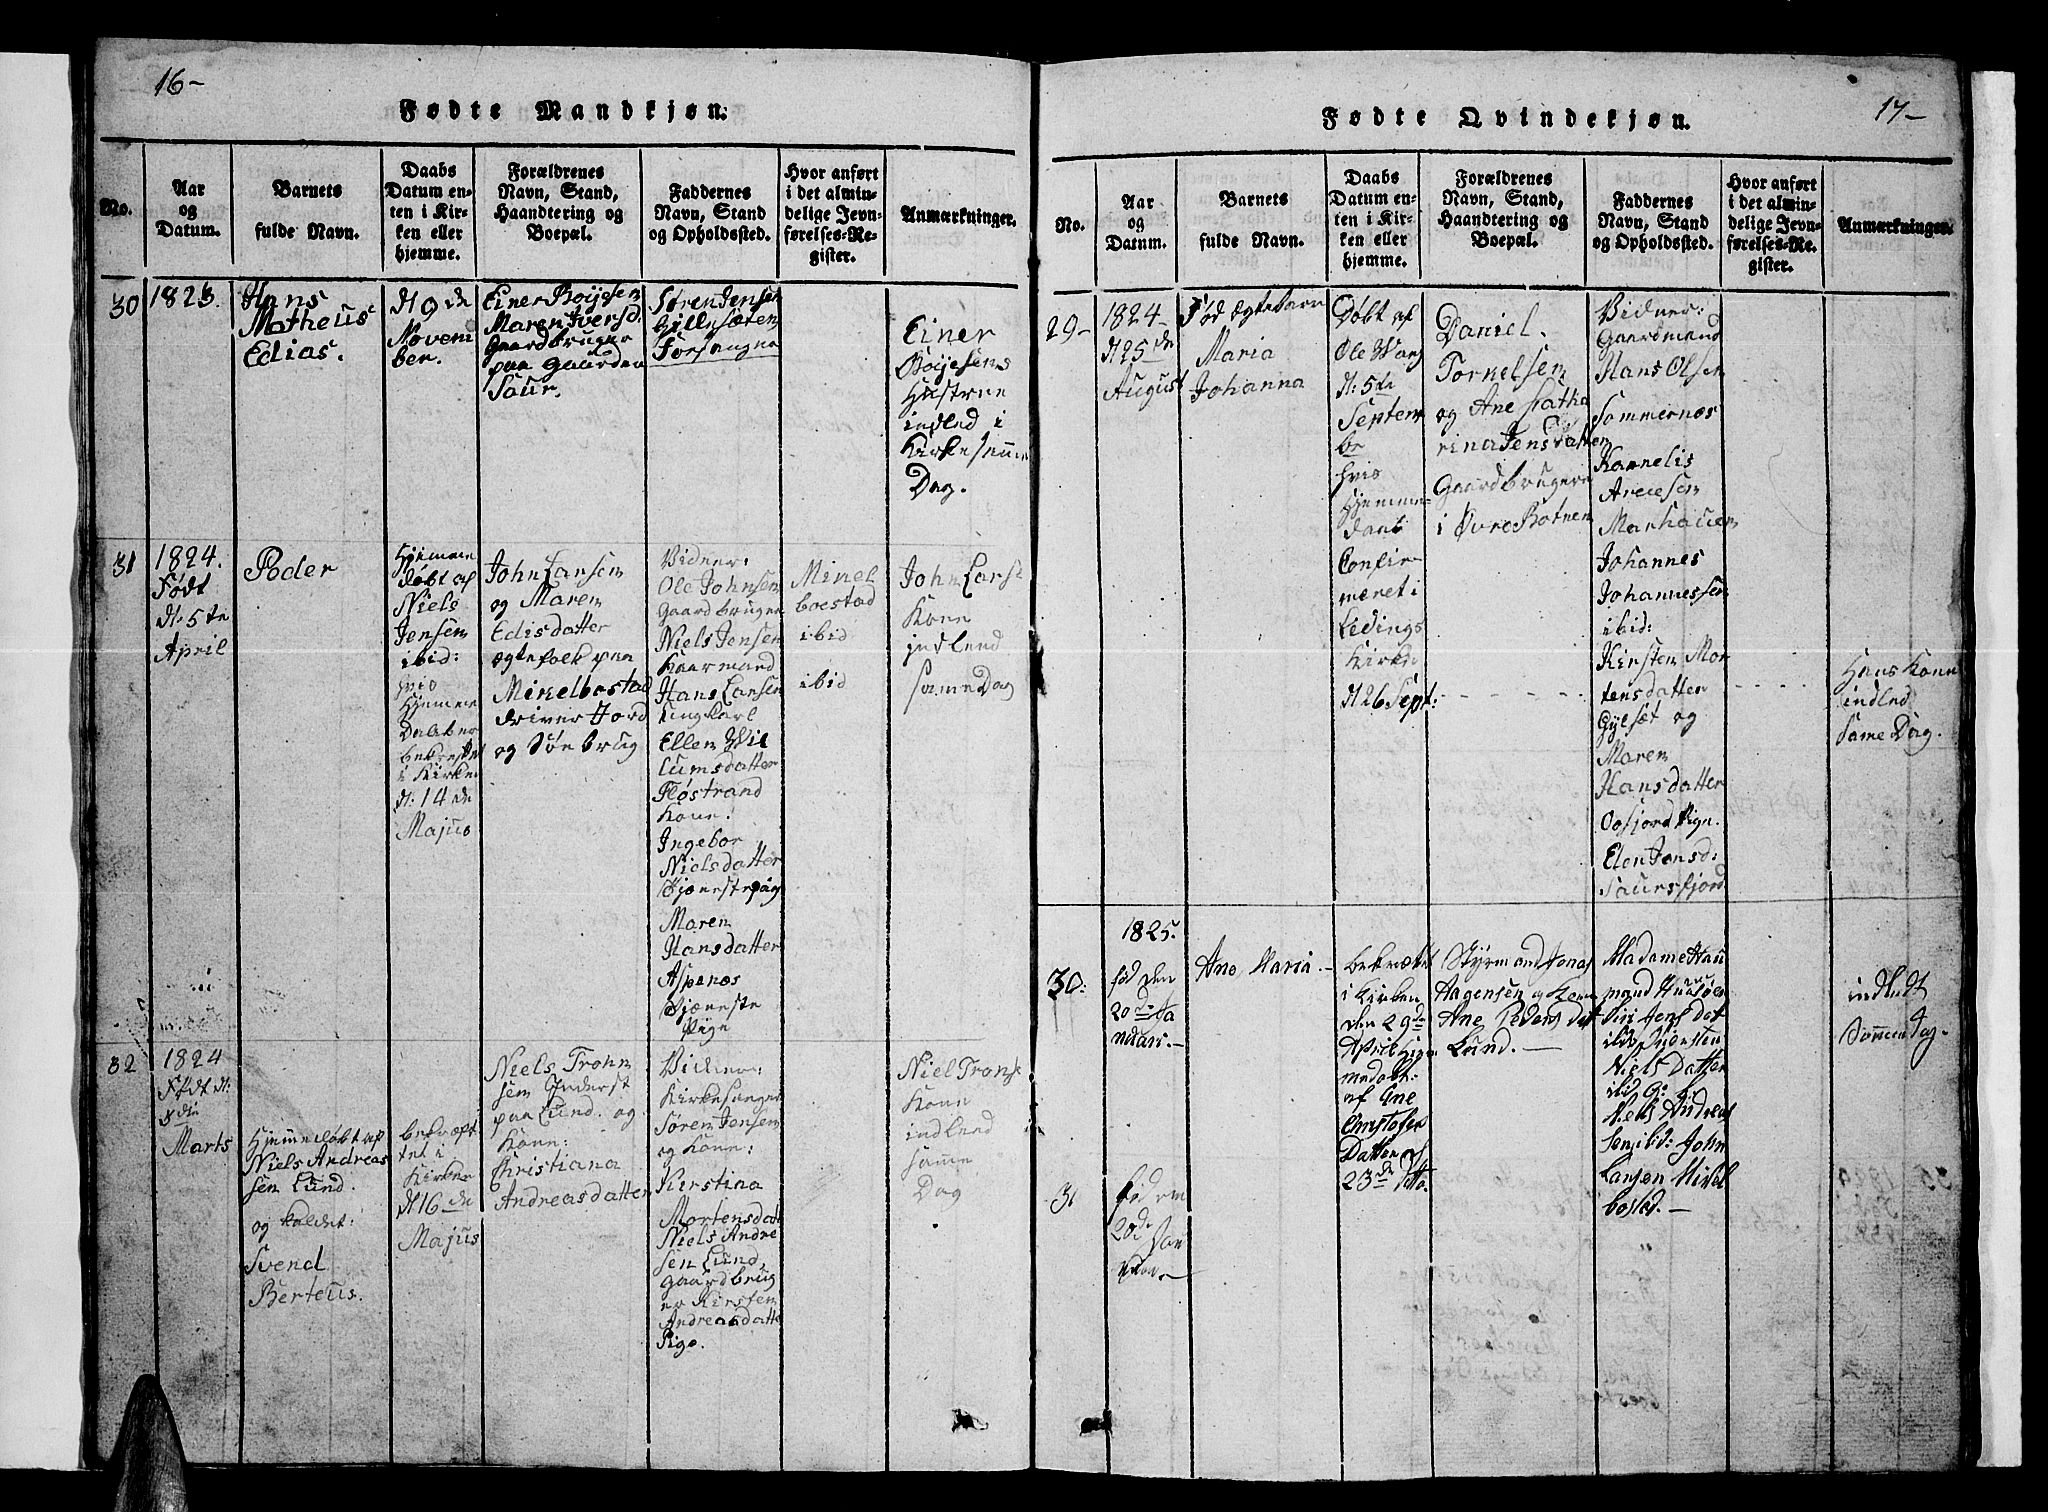 16-
Fødte Mandkjøn:
No.
Aar
og
Datum.
Barnets
fulde Navn.
Daabs
Datum en-
ten i Kir-
ken eller
hjemme.
Forældrenes
Navn, Stand,
Haandtering og
Boepæl.
Faddernes
Navn, Stand
og Opholdssted.
Hvor anført
i det almin-
delige Jevn-
førelses-Re-
gister.
Anmærkninger.
30
1823.
Hans
Matheus
Edias.
d: 9 de
Novem
ber.
Einer Boijesen
Maren Iversd:
Gaardbruger
paa Gaarden
Saur.
Søren Jensen
Gillesæten
Forsanger
Einer
Boijesens
Hustrue
indled i
Kirke samme
Dag.
31
1824.
Født
d: 5te
April
Peder
Hjemme
døbt af
Niels
Jensen
ibid:
hvis
Hjemme
Daab er
bekræftet
i Kirken
d: 14 de
Majus
John Larsen
og Maren
Edisdatter
egtefolk paa
Mikelbostad
driver Jord
og Søe brug
Vidner:
Ole Johnsen
Gaardbruger
Niels Jensen
Kaarmand
Hans Larsen
Ungkarl
Ellen Wil
lumsdatter
Fløstrand
Kone.
Ingebor
Nielsdatter
Tjænestepige
Maren
Hansdatter
Aspenæs
Tjæneste
Pige
Mikel
boestad
ibid
ibid
John Lars:
Kone
indlend
same Dag
32
1824
Født d:
de
Marts
Hjemmedøbt af
Niels Andreas
sen Lund.
og kaldet:
Svend
Berteus.
bekræft
tet i
Kirken
d: 16 de
Majus
Niels Tron
sen Inderst
paa Lund. og
Kone:
Christiana
Andreasdatter
Vidner:
Kirkesanger
Søren Jensen
og Kone:
Kerstina
Mortensdat
Niels Andre
sen Lund,
Gaardbrug
er Kirsten
Andreasdatte
Pige.
Niel Trons:
Kone
indlend
samme
Dag
17-
Fødte Qvindekjøn.
No.
Aar
og
Datum.
Barnets
fulde Navn.
Daabs
Datum en-
ten i Kir-
ken eller
hjemme.
Forældrenes
Navn, Stand,
Haandtering og
Boepæl.
Faddernes
Navn, Stand
og Opholdssted.
Hvor anført
i det almin-
delige Jevn-
førelses-Re-
gister.
Anmærkninger.
29-
1824
d: 25 de
August
Fød egte barn
Maria
Johanna
Døbt af
Ole
d: 5te
Septem
be
hvis
Hjemme-
daab
Confir
meret i
Ledings
Kirke
d: 26 Sept:
Daniel
Tornelsen
og Ane Katha
rina Jensdatter
Gaardbruger
i Øvre Botnen
Vidner:
Gaardmand
Hans Olsen
Sommernæs
Kornelis
Arnesen
Marhauen
Johannes
Johannessen
ibid:
Kirsten Mor
tensdatter
Gylset og
Maren
Hansdatter
Oosfjord Pige.
Elen Jensd:
Saursfjord
Hans Kone
indled
same Dag.
30:
1825.
fød den
20 de Ja
nuari.-
Ane Maria.-
bekræftet
i Kirken
den 29 de
April Hjem
medøbt:
af Ane
Christofer
Datter d
23 de dito.
Styrmand Jonas
Aagensen og Kone
Ane Peders dat
Lund.-
Madame Hau
mand Husøen
Siri Jens dat
ibid Kirsten
Niels Datter
ibid G: b:
Niels Andreas
sen ibid: John
Larsen Mikel
bosted.-
indledt
samme Dag.
31
Fød em
20 de Jan
uar.-